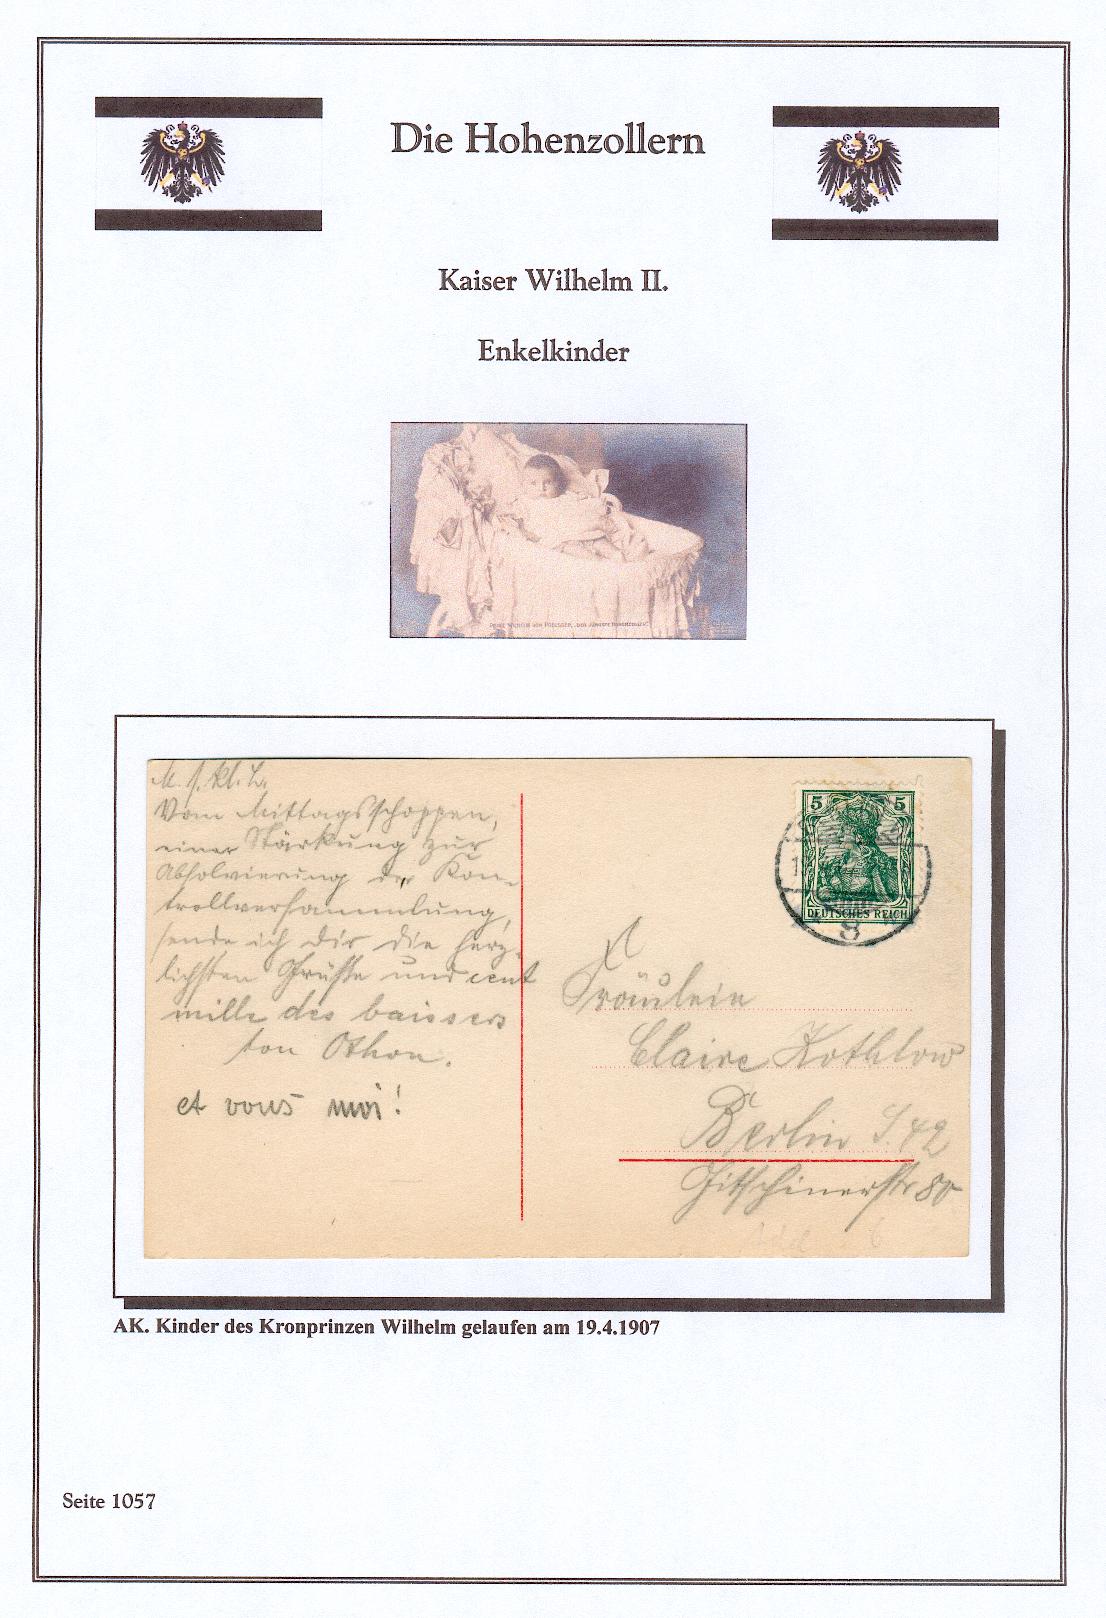 Die Hohenzollern
Kaiser Wilhelm II.
Enkelkinder
PRINZ WILHELM VON PREUSSEN, „DER JÜNGSTE HOHENZOLLER“
M. l. kl. L.
Vom Mittagsschoppen,
einer Stärkung zur
Absolvierung der Kon-
trollversammlung,
sende ich dir die herz-
lichsten Grüsse und cent
mille des baissers
ton Othon.
et vous moi!
5 5
DEUTSCHES REICH
8
Fräulein
Claire Kothlow
Berlin S. 42
Gitschinerstr 80
AK. Kinder des Kronprinzen Wilhelm gelaufen am 19.4.1907
Seite 1057